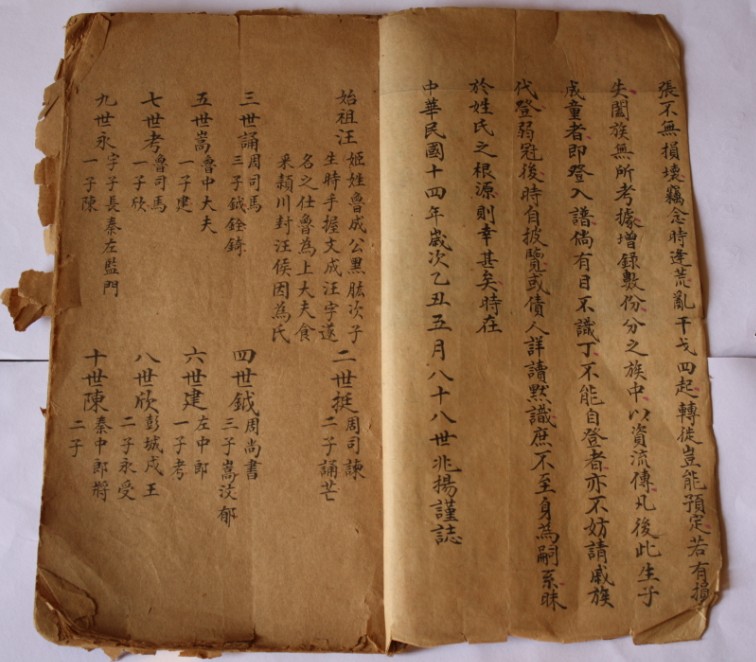 張不無損壞竊念時逢荒亂干戈四起轉徙豈能預定若有損
失闔族無所考據增錄數份分之族中以資流傳凡後此生子
成童者即登入譜倘有目不識丁不能自登者亦不妨請戚族
代登弱冠後時自披覽或倩人詳讀默識庶不至身為嗣系昧
於姓氏之根源則幸甚矣時在
中華民國十四年歲次乙丑五月八十八世兆揚謹誌
始祖汪
姬姓魯成公黑肱次子
生時手握文成汪字遂
名之仕魯為上大夫食
采潁川封汪侯因為氏
二世挺
周司諫
二子誦芒
三世誦
周司馬
三子鉞銓錡
四世鉞
周尚書
三子嵩汶郁
五世嵩
魯中大夫
一子建
六世建
左中郎
一子考
七世考
魯司馬
一子欣
八世欣
彭城戍王
二子永受
九世永
字子長秦左監門
一子陳
十世陳
秦中郎將
二子